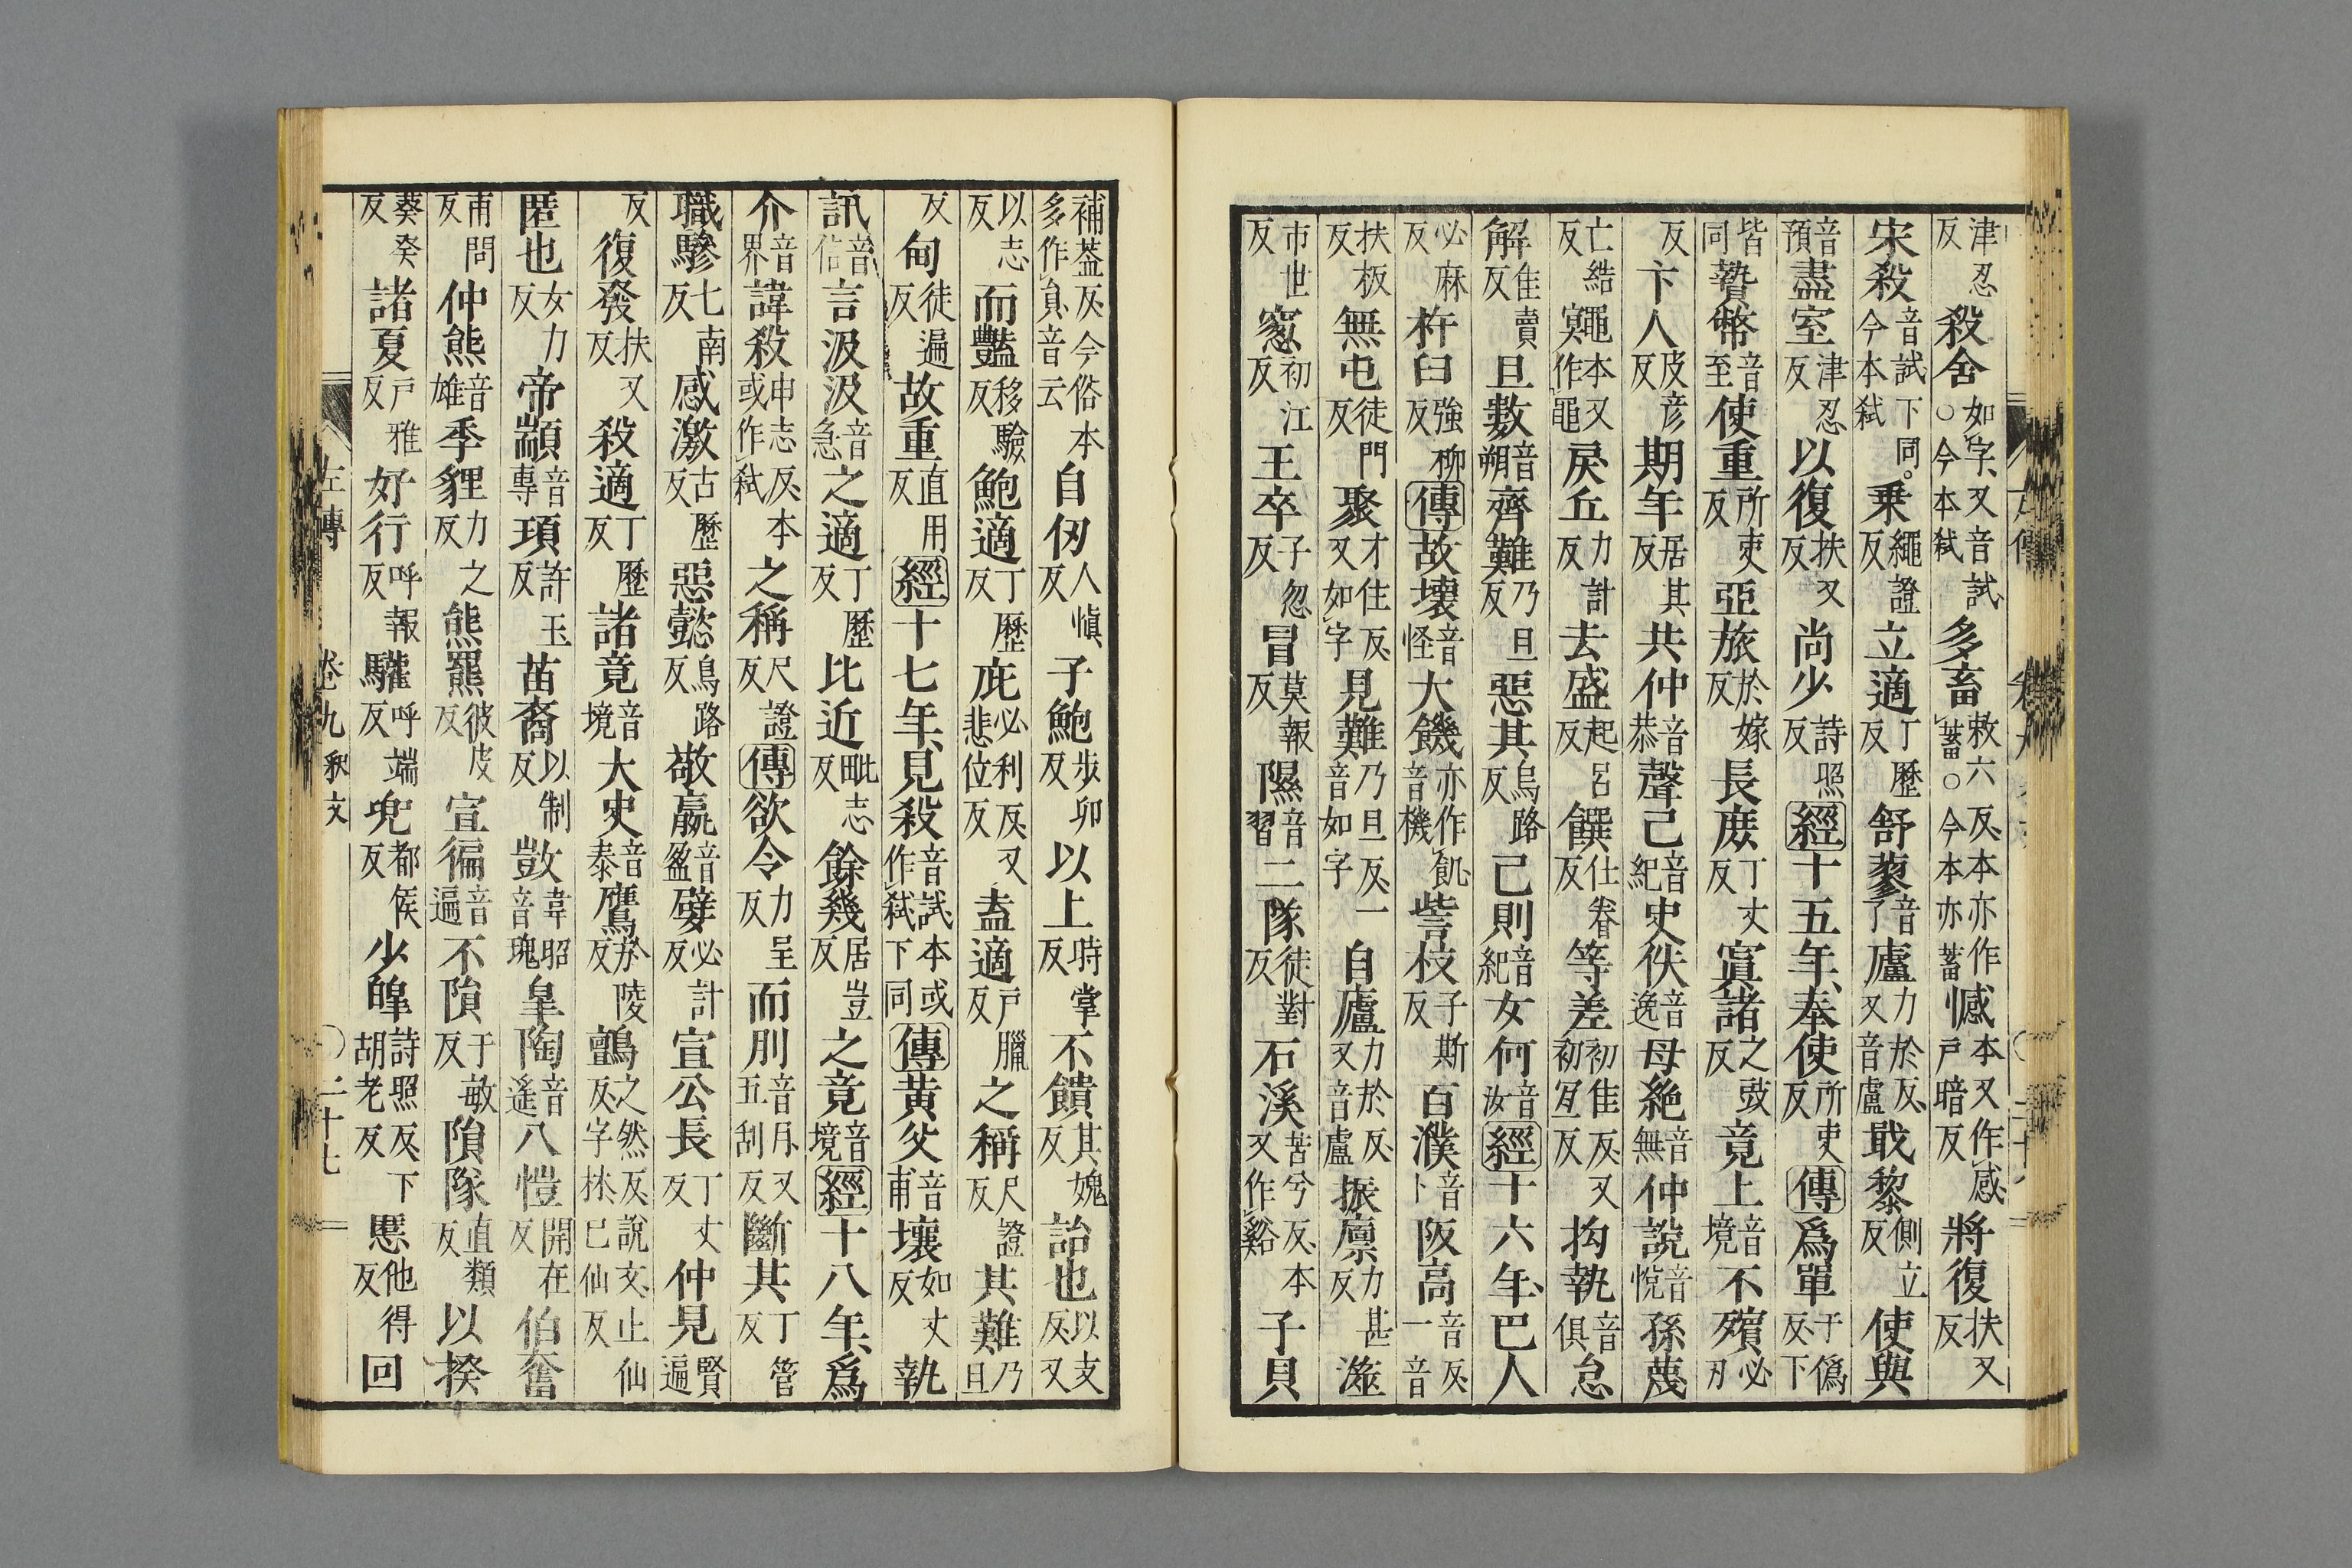 津忍反殺舍如字又音試○今本弒多畜敕六反本亦作蓄○今本亦蓄憾本又作感戶暗反將復扶又反
宋殺音試下同。今本弒乗繩證反立適丁歷反舒蓼音了廬力於反又音盧戢黎側立反使與
音預盡室津忍反以復扶又反尚少詩照反經十五年奉使所吏反傳爲單于僞反下
皆同贄幣音至使重所吏反亞旅於嫁反長庶丁丈反寘諸之豉反竟上音境不殯必刃
反卞人皮彦反期年居其反共仲音恭聲己音紀史佚音逸母絶音無仲說音悅孫蔑
亡結反鼆本又作黽戾丘力計反去盛起呂反饌仕眷反等差初佳反又初冝反拘執音俱怠
解佳賣反且數音朔齊難乃旦反惡其烏路反己則音紀女何音汝經十六年巴人
必麻反杵臼強柳反傳故壞音怪大饑亦作飢音機訾枝子斯反百濮音卜阪高音反一音
扶板反無屯徒門反聚才住反又如字見難乃旦反一音如字自廬力於反又音盧振廩力甚反澨
市世反窻初江反王卒子忽反冒莫報反隰音習二隊徒對反石溪苦兮反本又作谿子貝
補蓋反今俗本多作負音云自伪人愼反子鮑步卯反以上時掌反不饋其媿反詒也以支反又
以志反而豔移驗反鮑適丁歷反庇必利反又悲位反盍適戶臘反之稱尺證反其難乃旦
反甸徒遍反故重直用反經十七年見殺音試本或作弒下同傳黃父音甫壤如丈反執
訊音信言汲汲音急之適丁歷反比近毗志反餘幾居豈反之竟音境經十八年爲
介音界諱殺申志反本或作弒之稱尺證反傳欲令力呈反而刖音月又五刮反斷其丁管反
職驂七南反感激古歷反惡懿烏路反敬嬴音盈嬖必計反宣公長丁丈反仲見賢遍
反復發扶又反殺適丁歷反諸竟音境大史音泰鷹於陵反鸇之然反說文止仙反字林巳仙反
匿也女力反帝顓音專頊許玉反苗裔以制反敳韋昭音瑰皐陶音遙八愷開在反伯奮
甫問反仲熊音雄季貍力之反熊羆彼皮反宣徧音遍不隕于敏反隕隊直類反以揆
葵癸反諸夏戶雅反好行呼報反驩呼端反兜都侯反少皥詩照反下胡老反慝他得反回
左傳 卷九釈文 ○ 二十七